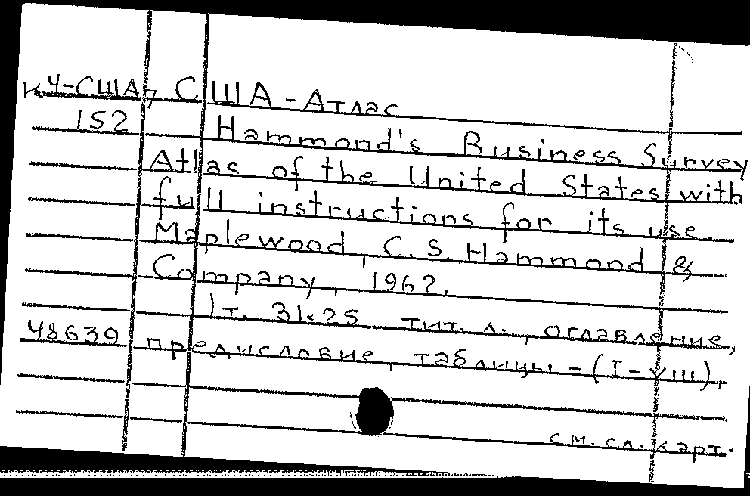 К4-США, США-Атлас
152 Hammond's Business Survey
Atlas of the United States with
full instructions for its use.
Maplewood, C. S. Hammond &
Company, 1962.
1т. 31x25 тит. л., оглавление,
48639 предисловие, таблицы - (I-VIII),
см. сл. карт.